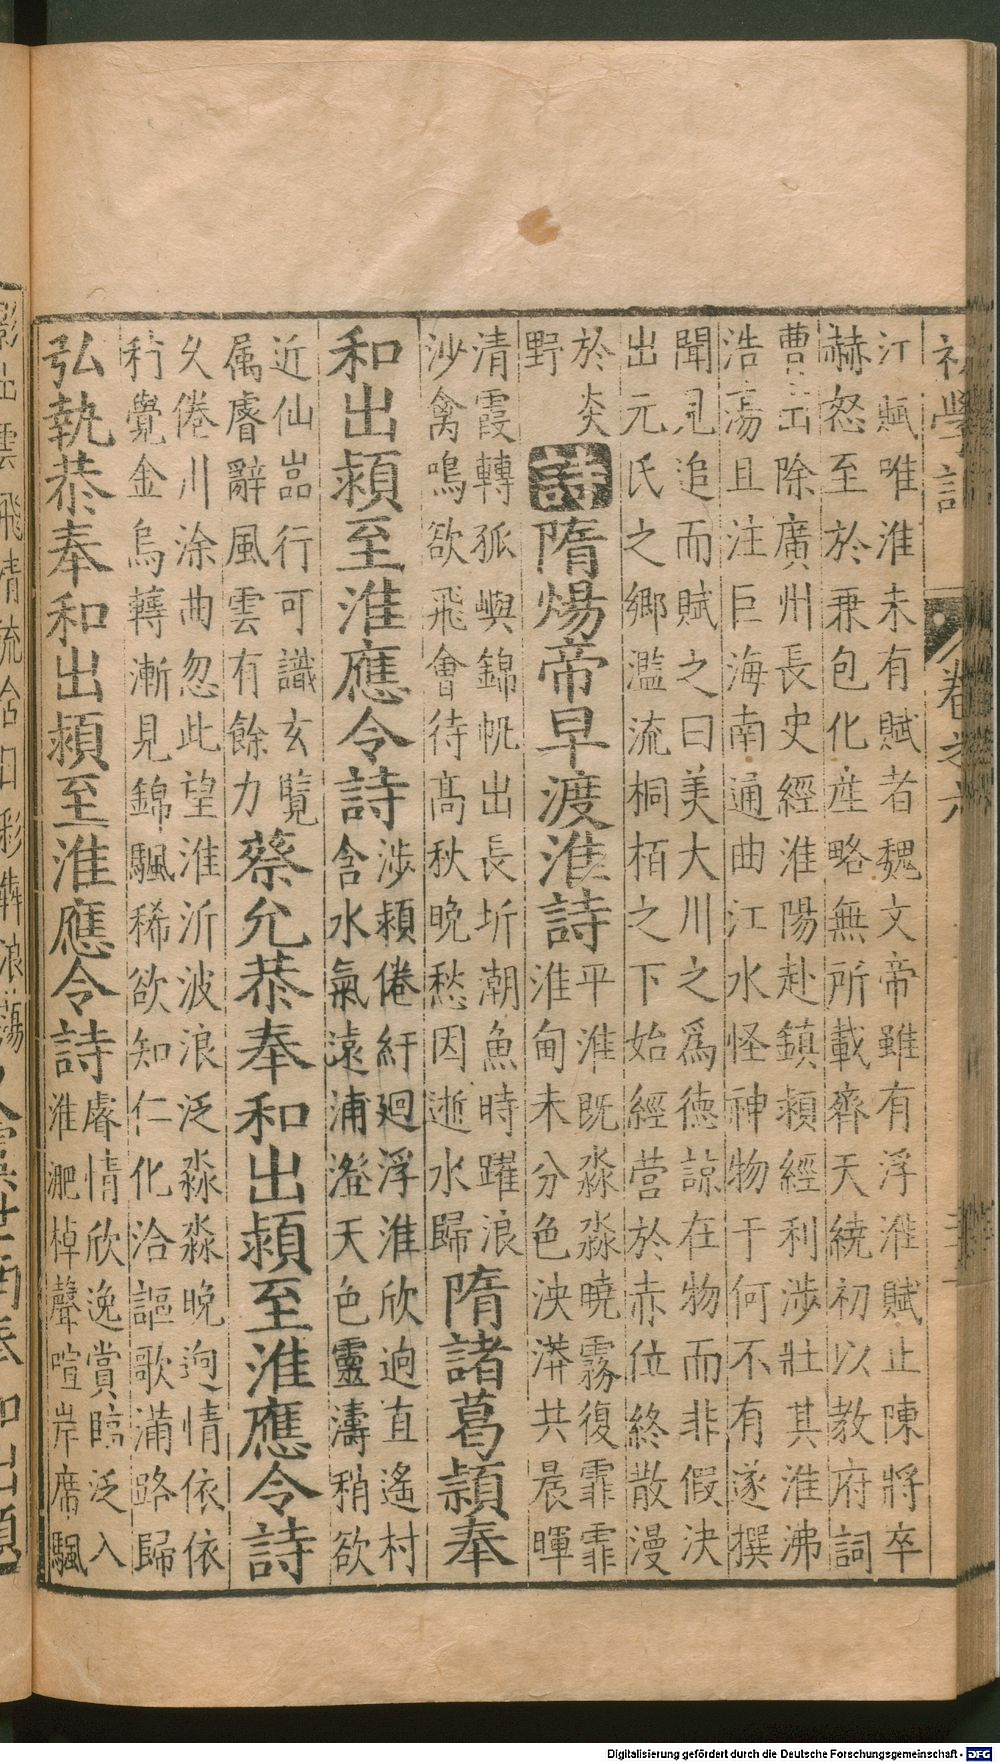 初學記 卷之六
江賦唯淮未有賦者魏文帝雖有浮淮賦止陳將卒
赫怒至於兼包化產略無所載齊天統初以教府詞
曹出除廣州長史經淮陽赴鎮頴經利涉壯其淮沸
浩蕩且注巨海南通曲江水怪神物于何不有遂撰
聞見追而賦之曰美大川之爲德諒在物而非假決
出元氏之鄉濫流桐栢之下始經營於赤位終散漫
於炎
野
詩隋煬帝早渡淮詩
平淮既淼淼曉霧復霏霏
淮甸未分色泱漭共晨暉
清霞轉孤嶼錦帆出長圻潮魚時躍浪
沙禽鳴欲飛會待髙秋晚愁因逝水歸
隋諸葛頴奉
和出頴至淮應令詩
涉頴倦紆廻浮淮欣逈直遙村
含水氣遠浦澄天色靈濤稍欲
近仙嵓行可識玄覽
属睿辭風雲有餘力
蔡允恭奉和出頴至淮應令詩
久倦川涂曲忽此望淮沂波浪泛淼淼晚逈情依依
稍覺金烏轉漸見錦颿稀欲知仁化洽謳歌滿路歸
弘執恭奉和出頴至淮應令詩
睿情欣逸賞臨泛入
淮淝棹聲喧岸席颿
Digitalisierung gefördert durch die Deutsche Forschungsgemeinschaft - DFG